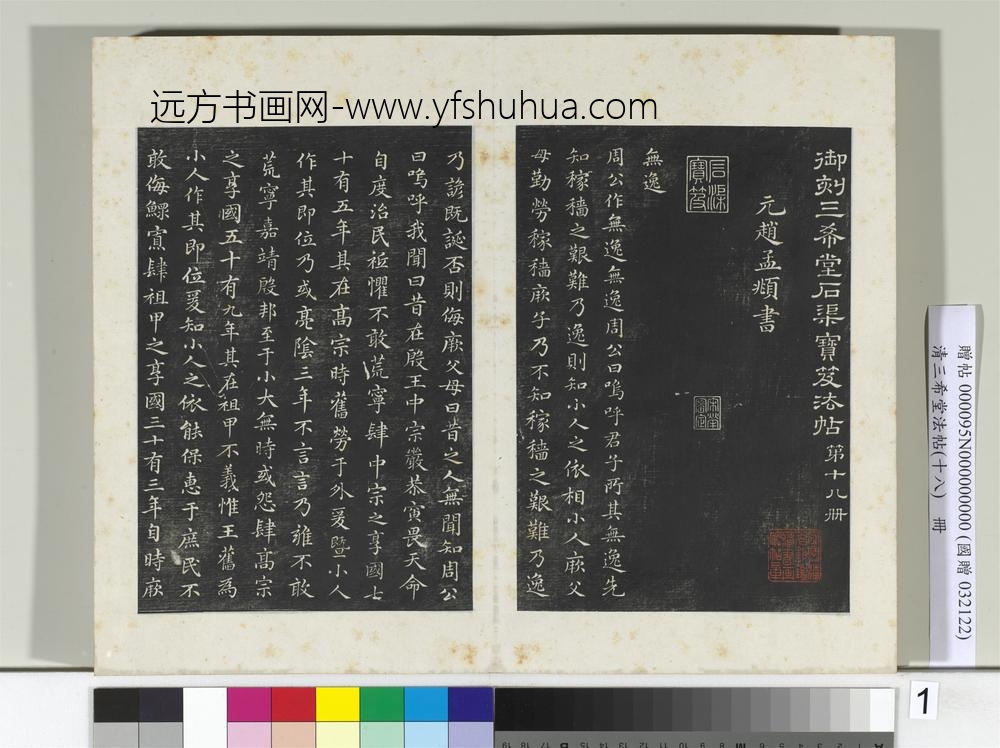 远方书画网-www.yfshuhua.com
御刻三希堂石渠寶笈法帖 第十八册
元趙孟頫書
石渠寶笈
無逸
周公作無逸無逸周公曰嗚呼君子所其無逸先
知稼穡之艱難乃逸則知小人之依相小人厥父
母勤勞稼穡厥子乃不知稼穡之艱難乃逸
乃諺既誕否則侮厥父母曰昔之人無聞知周公
曰嗚呼我聞曰昔在殷王中宗嚴恭寅畏天命
自度治民祗懼不敢荒寧肆中宗之享國七
十有五年其在髙宗時舊勞于外爰暨小人
作其即位乃或亮陰三年不言言乃雍不敢
荒寧嘉靖殷邦至于小大無時或怨肆髙宗
之享國五十有九年其在祖甲不義惟王舊為
小人作其即位爰知小人之依能保惠于庶民不
敢侮鰥寡肆祖甲之享國三十有三年自時厥
贈帖 000095N000000000 (國贈 032122)
清三希堂法帖(十八) 冊
1